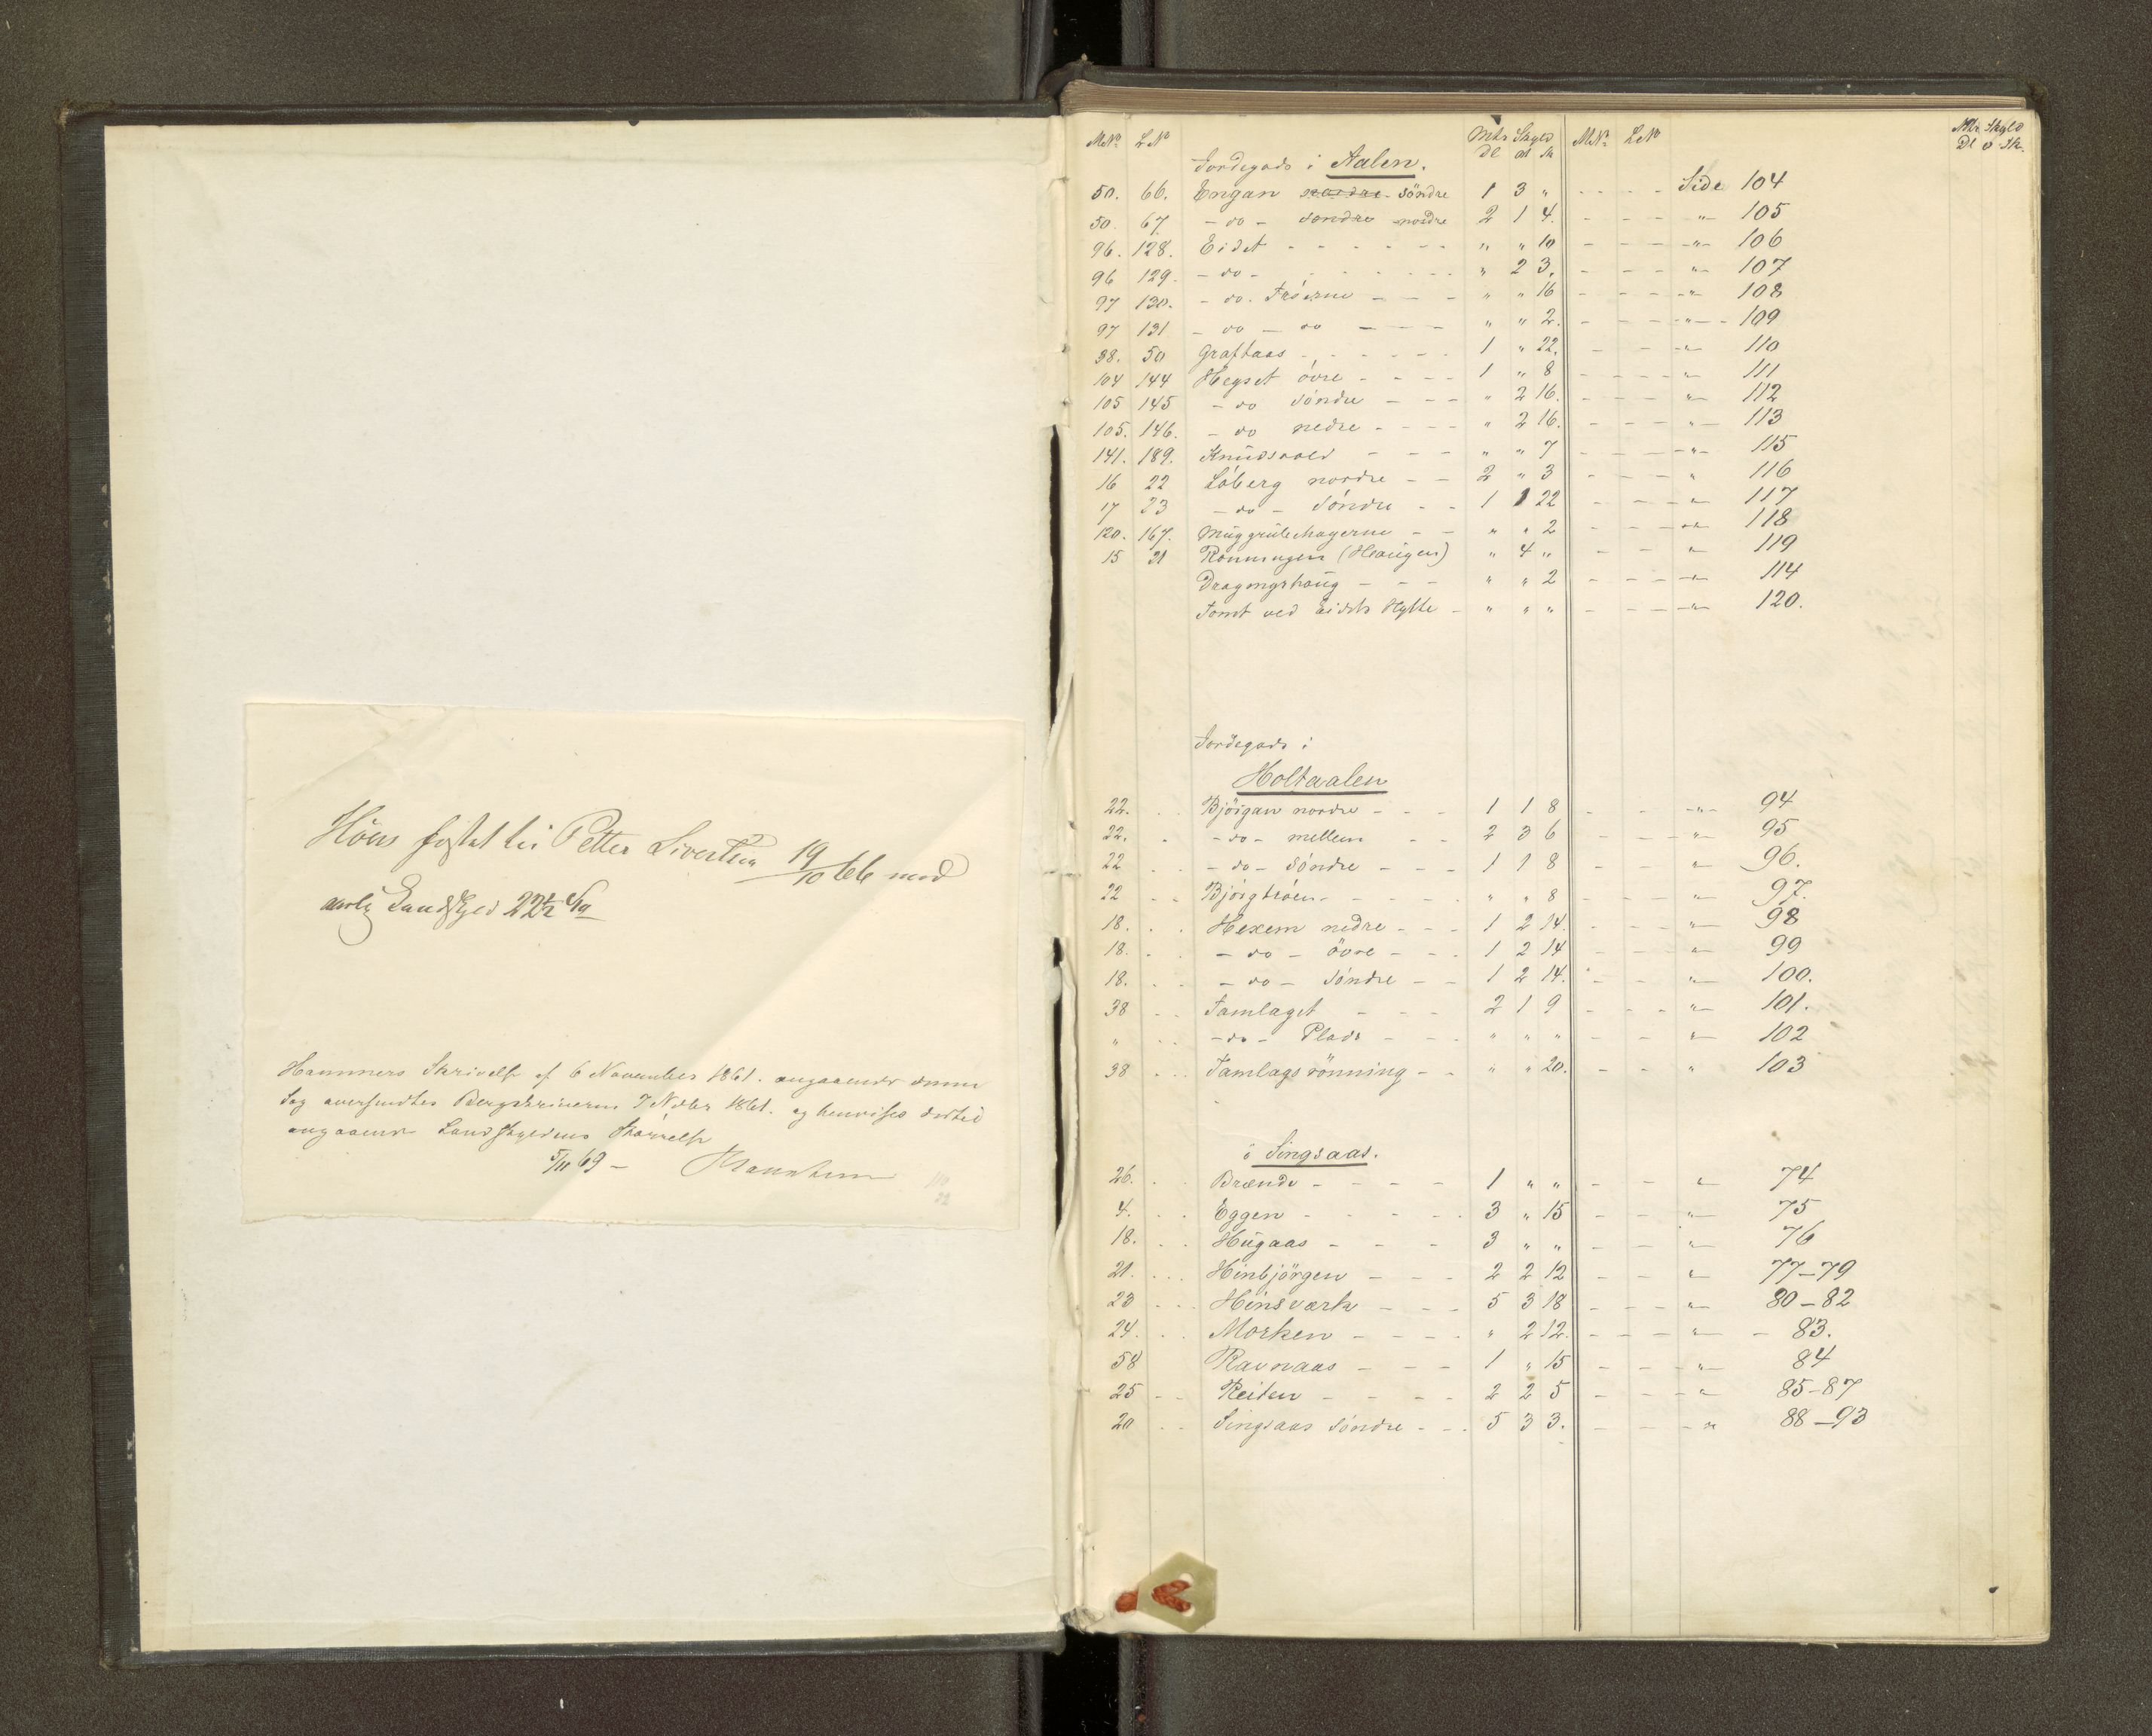 Höen fæstet til Petter Sivertsen 19/10 66 mod
aarlig Landskyld 22½ ß
Hammers Skrivelse af 6 November 1861. angaaende denne
Sag oversendtes Bergskriveren 7 Novbr 1861. og henvises dertil
angaaende Landskyldens Størrelse
5/11 69 –
M.Nr. L.Nr Mtr Skyld M.Nr. L.Nr Mtr. Skyld
Dl ort sk Dl o sk.
Jordegods i Aalen.
50. 66. Engan nordre söndre 1 3 " - - - - Side 104
50. 67. - do - söndre nordre 2 1 4. - - - " 105
96. 128. Eidet - - - - - - " " 10 - - - " - 106
96 129. - do - - - - - - " 2 3. - - - " - 107
97 130. - do. Tröerne - - - " " 16 - - - " - 108
97 131 - do - do - - - " " 2. - - - " - 109
38. 50 Graftaas - - - - - - 1 " 22. - - - " - 110
104 144 Hegset övre - - - - 1 " 8 - - - " - 111
105 145 - do söndre - - - " 2 16. - - - " - 112
105. 146. - do nedre - - - - " 2 16. - - - " - 113
141. 189. Knudsvold - - - " " 7 - - - " - 115
16 22 Löberg nordre - - 2 " 3 - - - " 116
17 23 - do - söndre - - 1 1 22 - - - " - 117
120. 167. Muggrubehagerne - - " " 2 - - - " - 118
15 21 Rönningen (Haugen) " 4 " - - - " - 119
Dragonshaug - - - " " 2 - - - " - 114
Tomt ved Eidets Hytte - " " " - - - " - 120.
Jordegods i
Holtaalen
22. Bjöigan nordre - - - 1 1 8 - - " - 94
22. - do - mellem - - 2 3 6 - - - " - 95
22 - do - söndre - - - 1 1 8 - - " - 96.
22 Bjöigtröen - - - - - " " 8 - - - " - 97.
18. Hexem nedre - - - 1 2 14. - - - " - 98
18. - do - övre - - - 1 2 14 - - - " - 99
18. - do - söndre - - 1 2 14. - - - " - 100.
38 Tamlaget - - - 2 1 9 - - - " - 101.
" - do - Plads - - - " " " - - " - 102
38 Tamlagsrönning - - " " 20. - - " 103
i Singsaas.
26. Brænde - - - - 1 " " - - " 74
4. Eggen - - - - - 3 " 15 - - " - 75
18. Hugaas - - - 3 " " - - " - 76
21. Hinbjörgen - - - 2 2 12 - - " 77-79
23 Hinsværk - - - 5 3 18 - - - " - 80-82
24. Morken - - - - " 2 12. - - - " - 83.
58 Ravnaas - - - 1 " 15 - - - " - 84
25 Reiten - - - - 2 2 5 - - - " 85-87
20 Singsaas söndre - - - 5 3 3. - - - " 88-93